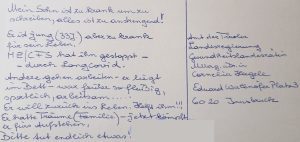 Mein Sohn ist zu krank um zu
schreiben, alles ist zu anstrengend!
Er ist jung (33J) aber zu krank
für sein Leben.
ME/CFS hat ihn gestoppt -
- durch Long Covid.
Andere gehen arbeiten - er liegt
im Bett - war früher so fleißig,
sportlich, arbeitsam...!
Er will zurück ins Leben. Helft ihm!!!
Er hatte Träume (Familie) - jetzt kämpft
er fürs Aufstehen,
Bitte tut endlich etwas!
Amt der Tiroler
Landesregierung
Gesundheitslandesrätin
Cornelia Hagele
Eduard Wallnöfer Platz 3
6020 Innsbruck